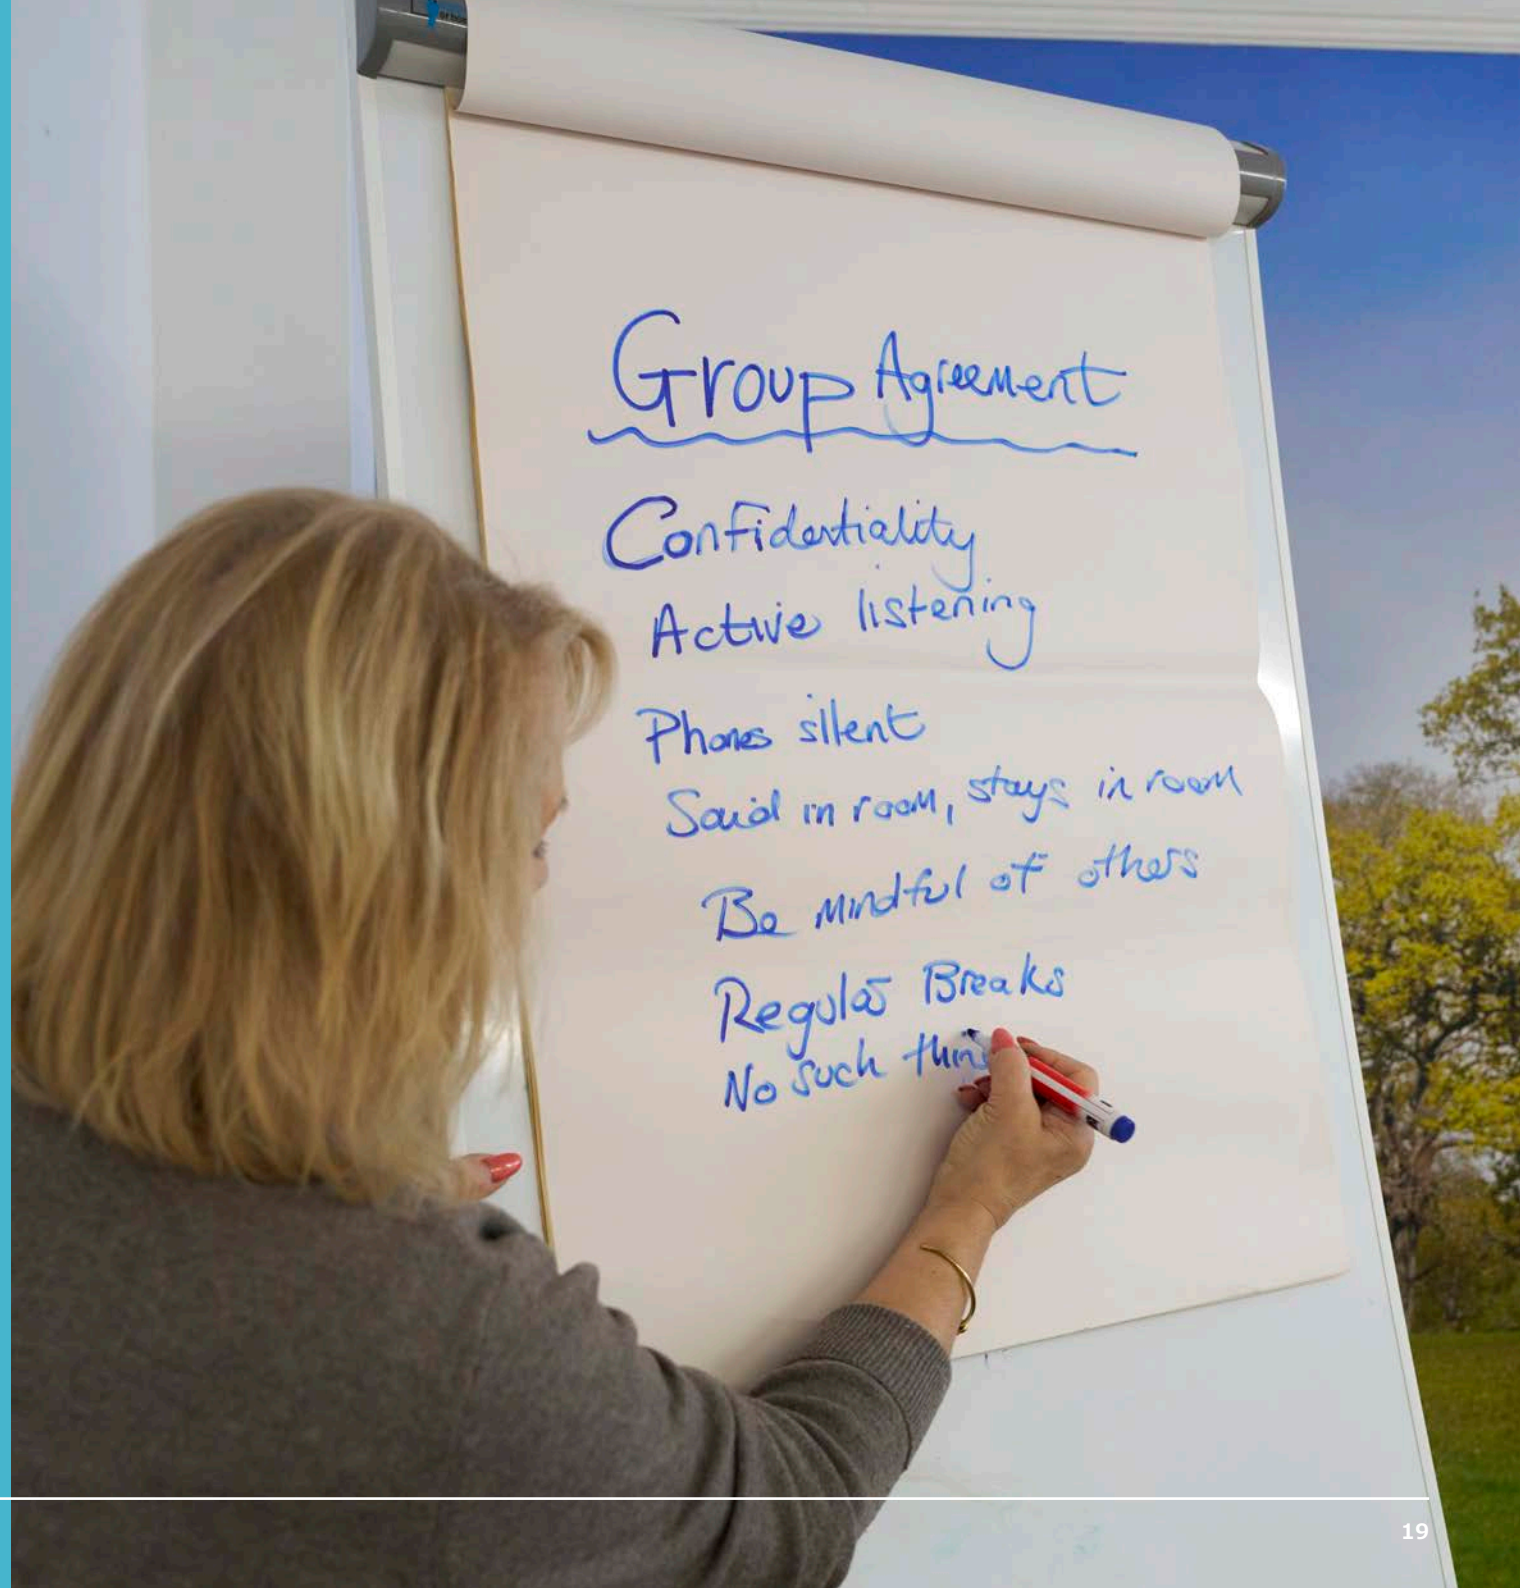 Group Agreement
Confidentiality
Active listening
Phones silent
Said in room, stays in room
Be mindful of others
Regular Breaks
No such thing
19